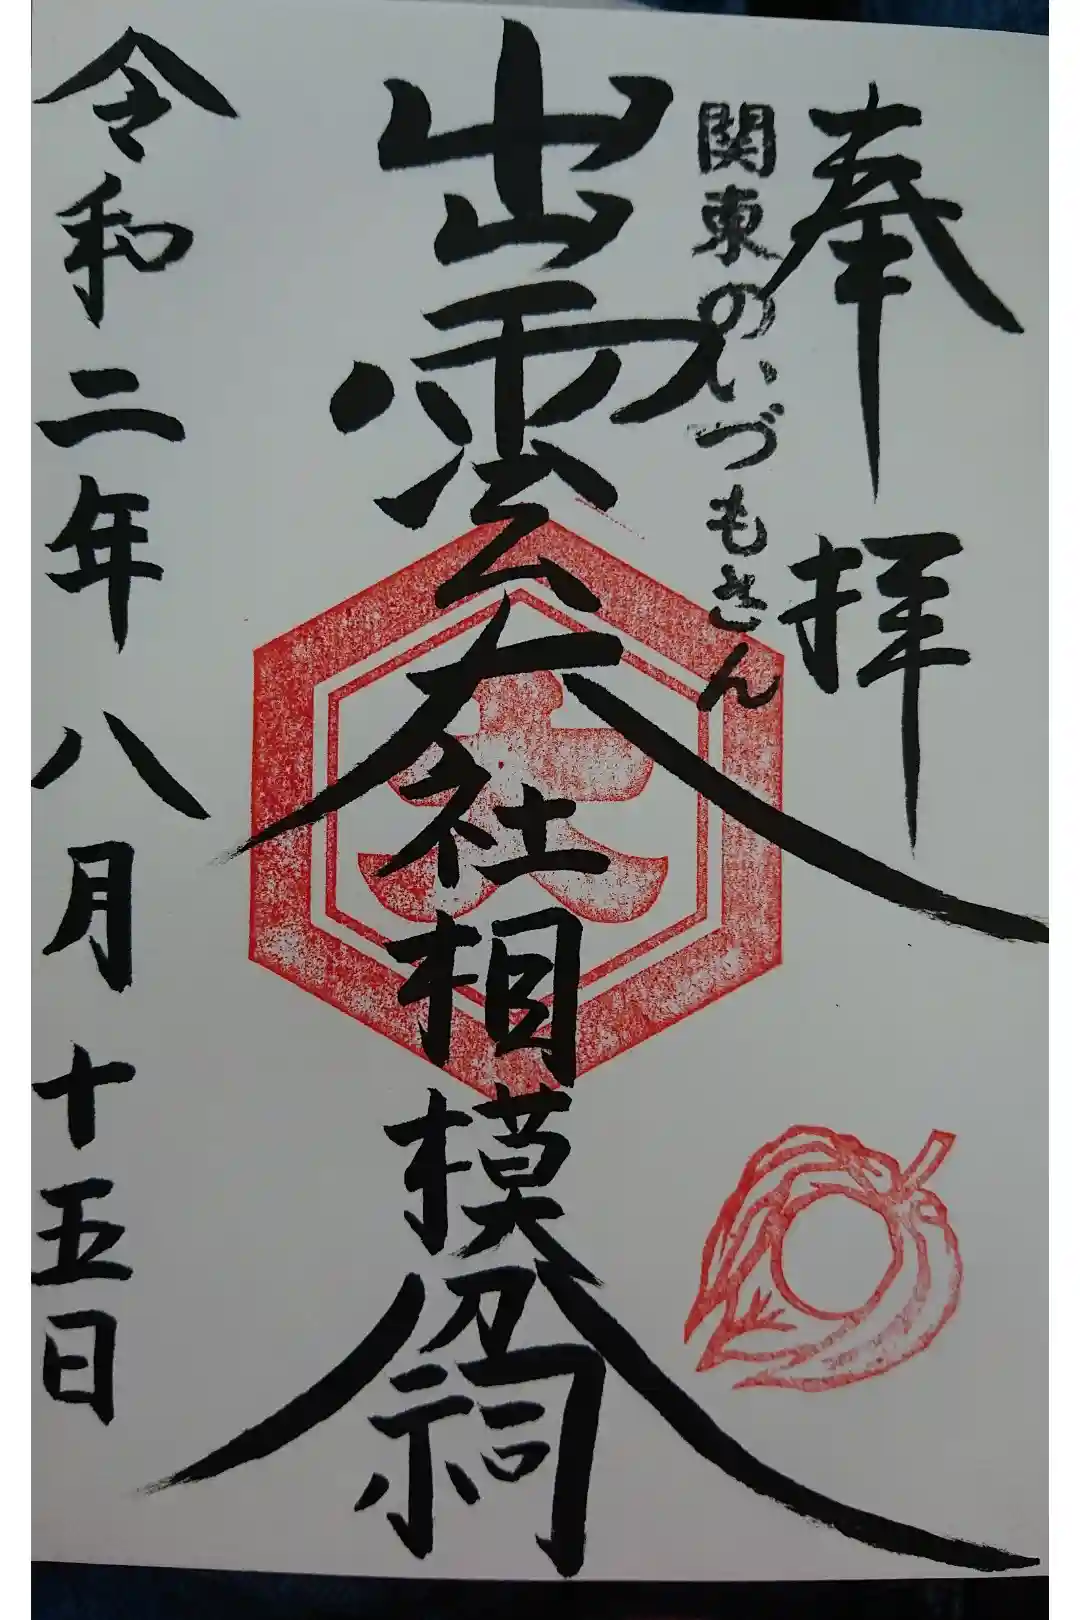 奉拝
関東のいづもさん
出雲大社相模分祠
令和二年八月十五日
大